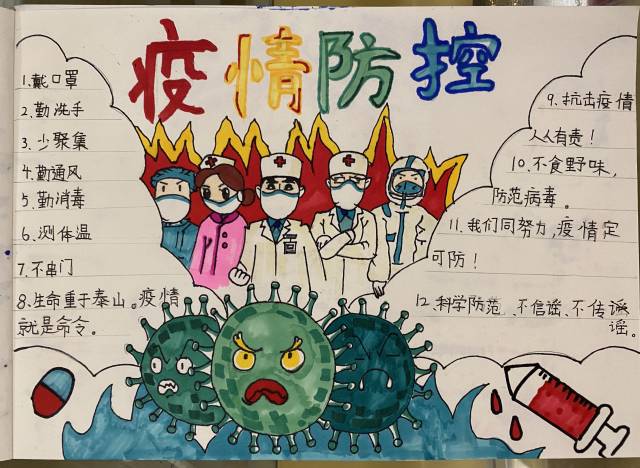 疫情防控
1.戴口罩
2.勤洗手
3.少聚集
4.勤通风
5.勤消毒
6.测体温
7.不串门
8.生命重于泰山。疫情
就是命令。
9.抗击疫情
人人有责!
10.不食野味,
防范病毒。
11.我们同努力,疫情定
可防!
12.科学防范、不信谣、不传谣
谣。